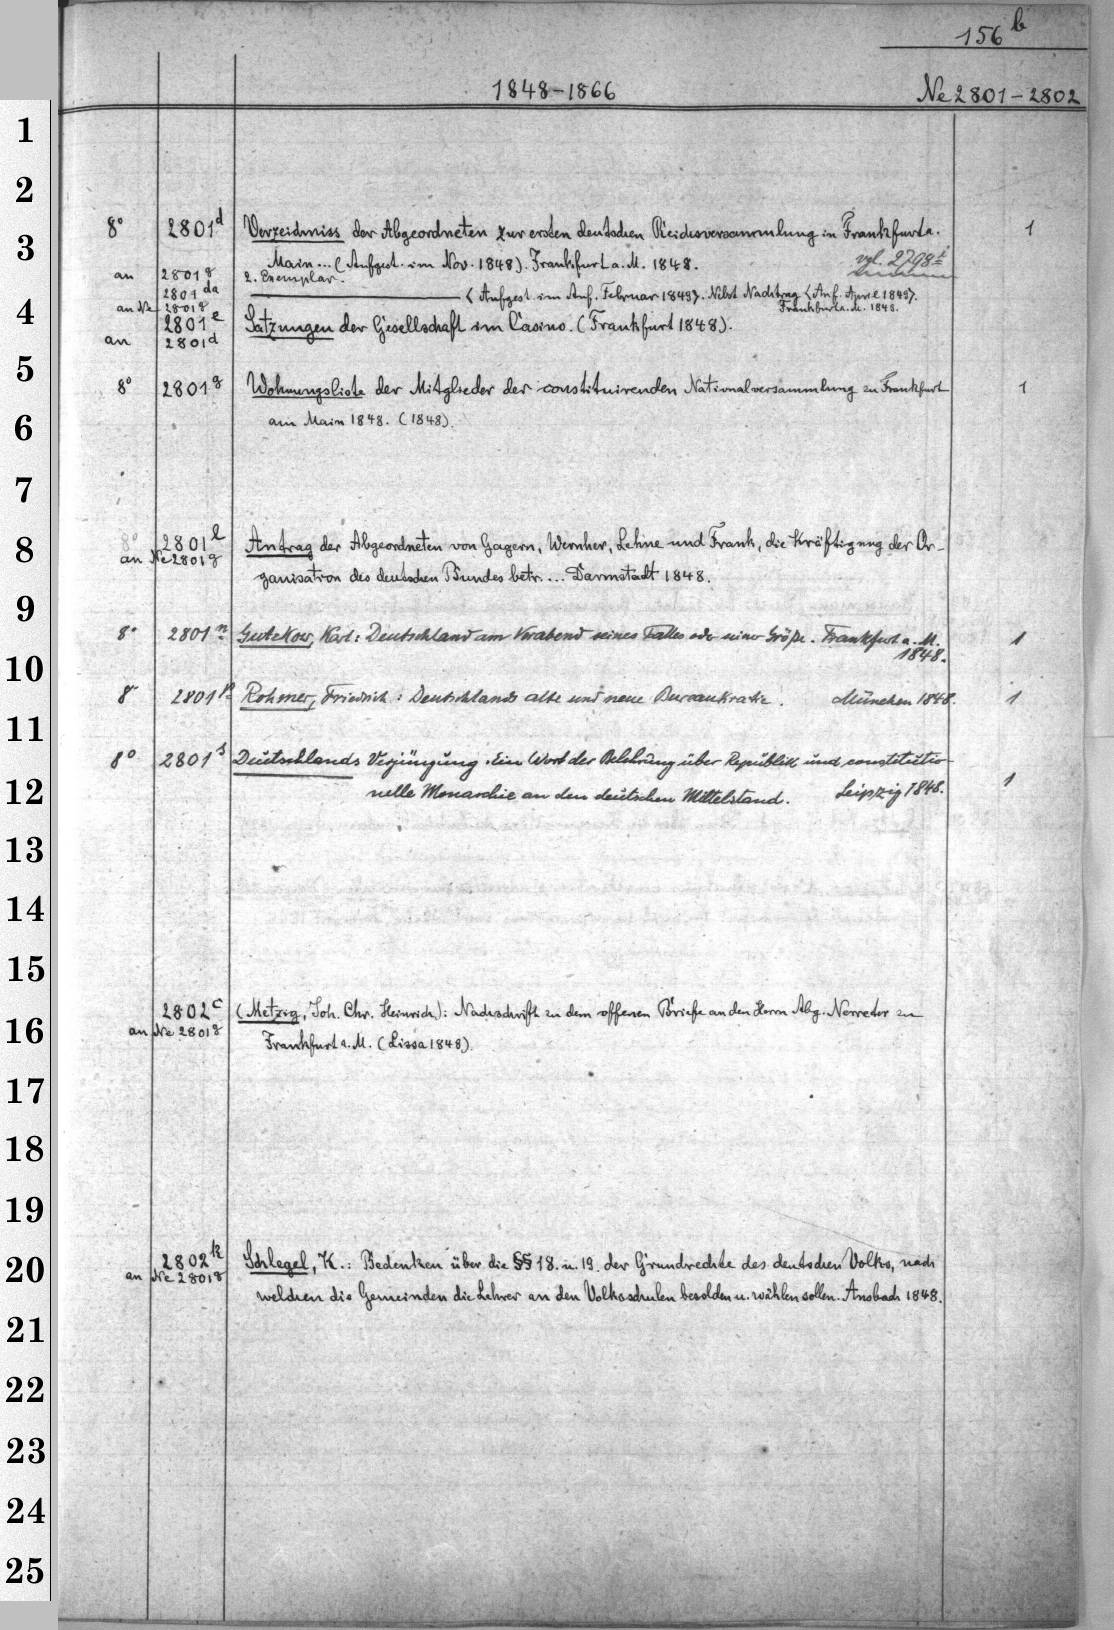 156 b
1848-1866 Ne 2801-2802
1
2
8° 2801d Verzeichniss der Abgeordneten zur ersten deutschen Reichsversammlung in Frankfurt a. 1
3
Main... (Aufgest. im Nov. 1848). Frankfurt a. M. 1848. vgl. 2798t
an 2801g 2. Exemplar.
2801da ——— (Aufgest. im Anf. Februar 1849). Nebst Nachtrag (Anf. April 1849).
an Ne 2801g Frankfurt a. M. 1848.
4
2801e Satzungen der Gesellschaft im Casino. (Frankfurt 1848).
an 2801d
5
8° 2801g Wohnungsliste der Mitglieder der constituirenden Nationalversammlung zu Frankfurt 1
6
am Main 1848. (1848).
7
8
8° 2801l Antrag der Abgeordneten von Gagern, Wernher, Lehne und Frank, die Kräftigung der Or-
an Ne 2801g
ganisation des deutschen Bundes betr.... Darmstadt 1848.
9
8° 2801n Gutzkow, Karl: Deutschland am Vorabend seines Falles oder seiner Größe. Frankfurt a. M. 1
1848.
10
8° 2801p Rohmer, Friedrich: Deutschlands alte und neue Bureaukratie. München 1848. 1
11
8° 2801s Deutschlands Verjüngung. Ein Wort der Belehrung über Republik und constitutio-
12
nelle Monarchie an den deutschen Mittelstand. Leipzig 1848. 1
13
14
15
2802c (Metzig, Joh. Chr. Heinrich): Nachschrift zu dem offenen Briefe an den Herrn Abg. Nerreter zu
16
an Ne 2801g
Frankfurt a. M. (Lissa 1848).
17
18
19
2802k Schlegel, K.: Bedenken über die §§ 18. u. 19. der Grundrechte des deutschen Volks, nach
20
an Ne 2801g
welchen die Gemeinden die Lehrer an den Volksschulen besolden u. wählen sollen. Ansbach 1848.
21
22
23
24
25